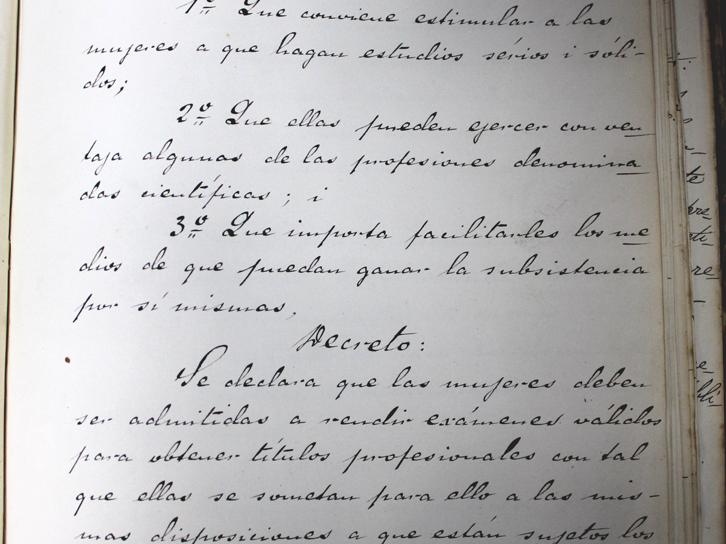 1º Que conviene estimular a las
mujeres a que hagan estudios sérios i sóli-
dos;
2º Que ellas pueden ejercer con ven
taja algunas de las profesiones denomina
das científicas; i
3º Que importa facilitarles los me
dios de que puedan ganar la subsistencia
por sí mismas,
Decreto:
Se declara que las mujeres deben
ser admitidas a rendir exámenes válidos
para obtener títulos profesionales con tal
que ellas se sometan para ello a las mis-
mas disposiciones a que están sujetos los